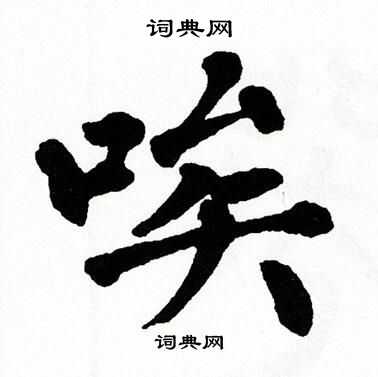 词典网
唉
词典网